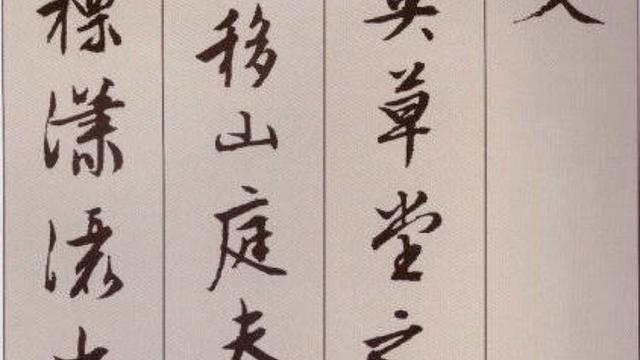 文
英草堂之
移山庭夫
標瀟灑出